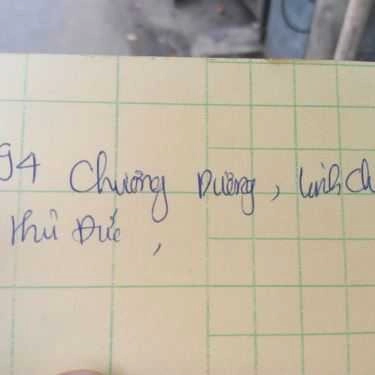 94 Chương Dương, Linh Ch
Thủ Đức,